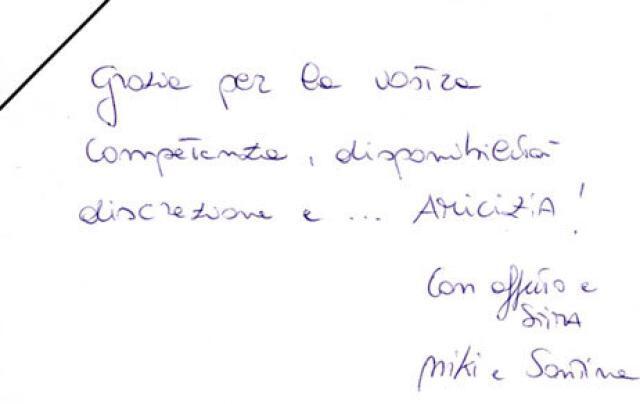 Grazie per la vostra
competenza, disponibilità
discrezione e ... AMICIZIA!
Con affetto e
STIMA
Miki e Santina